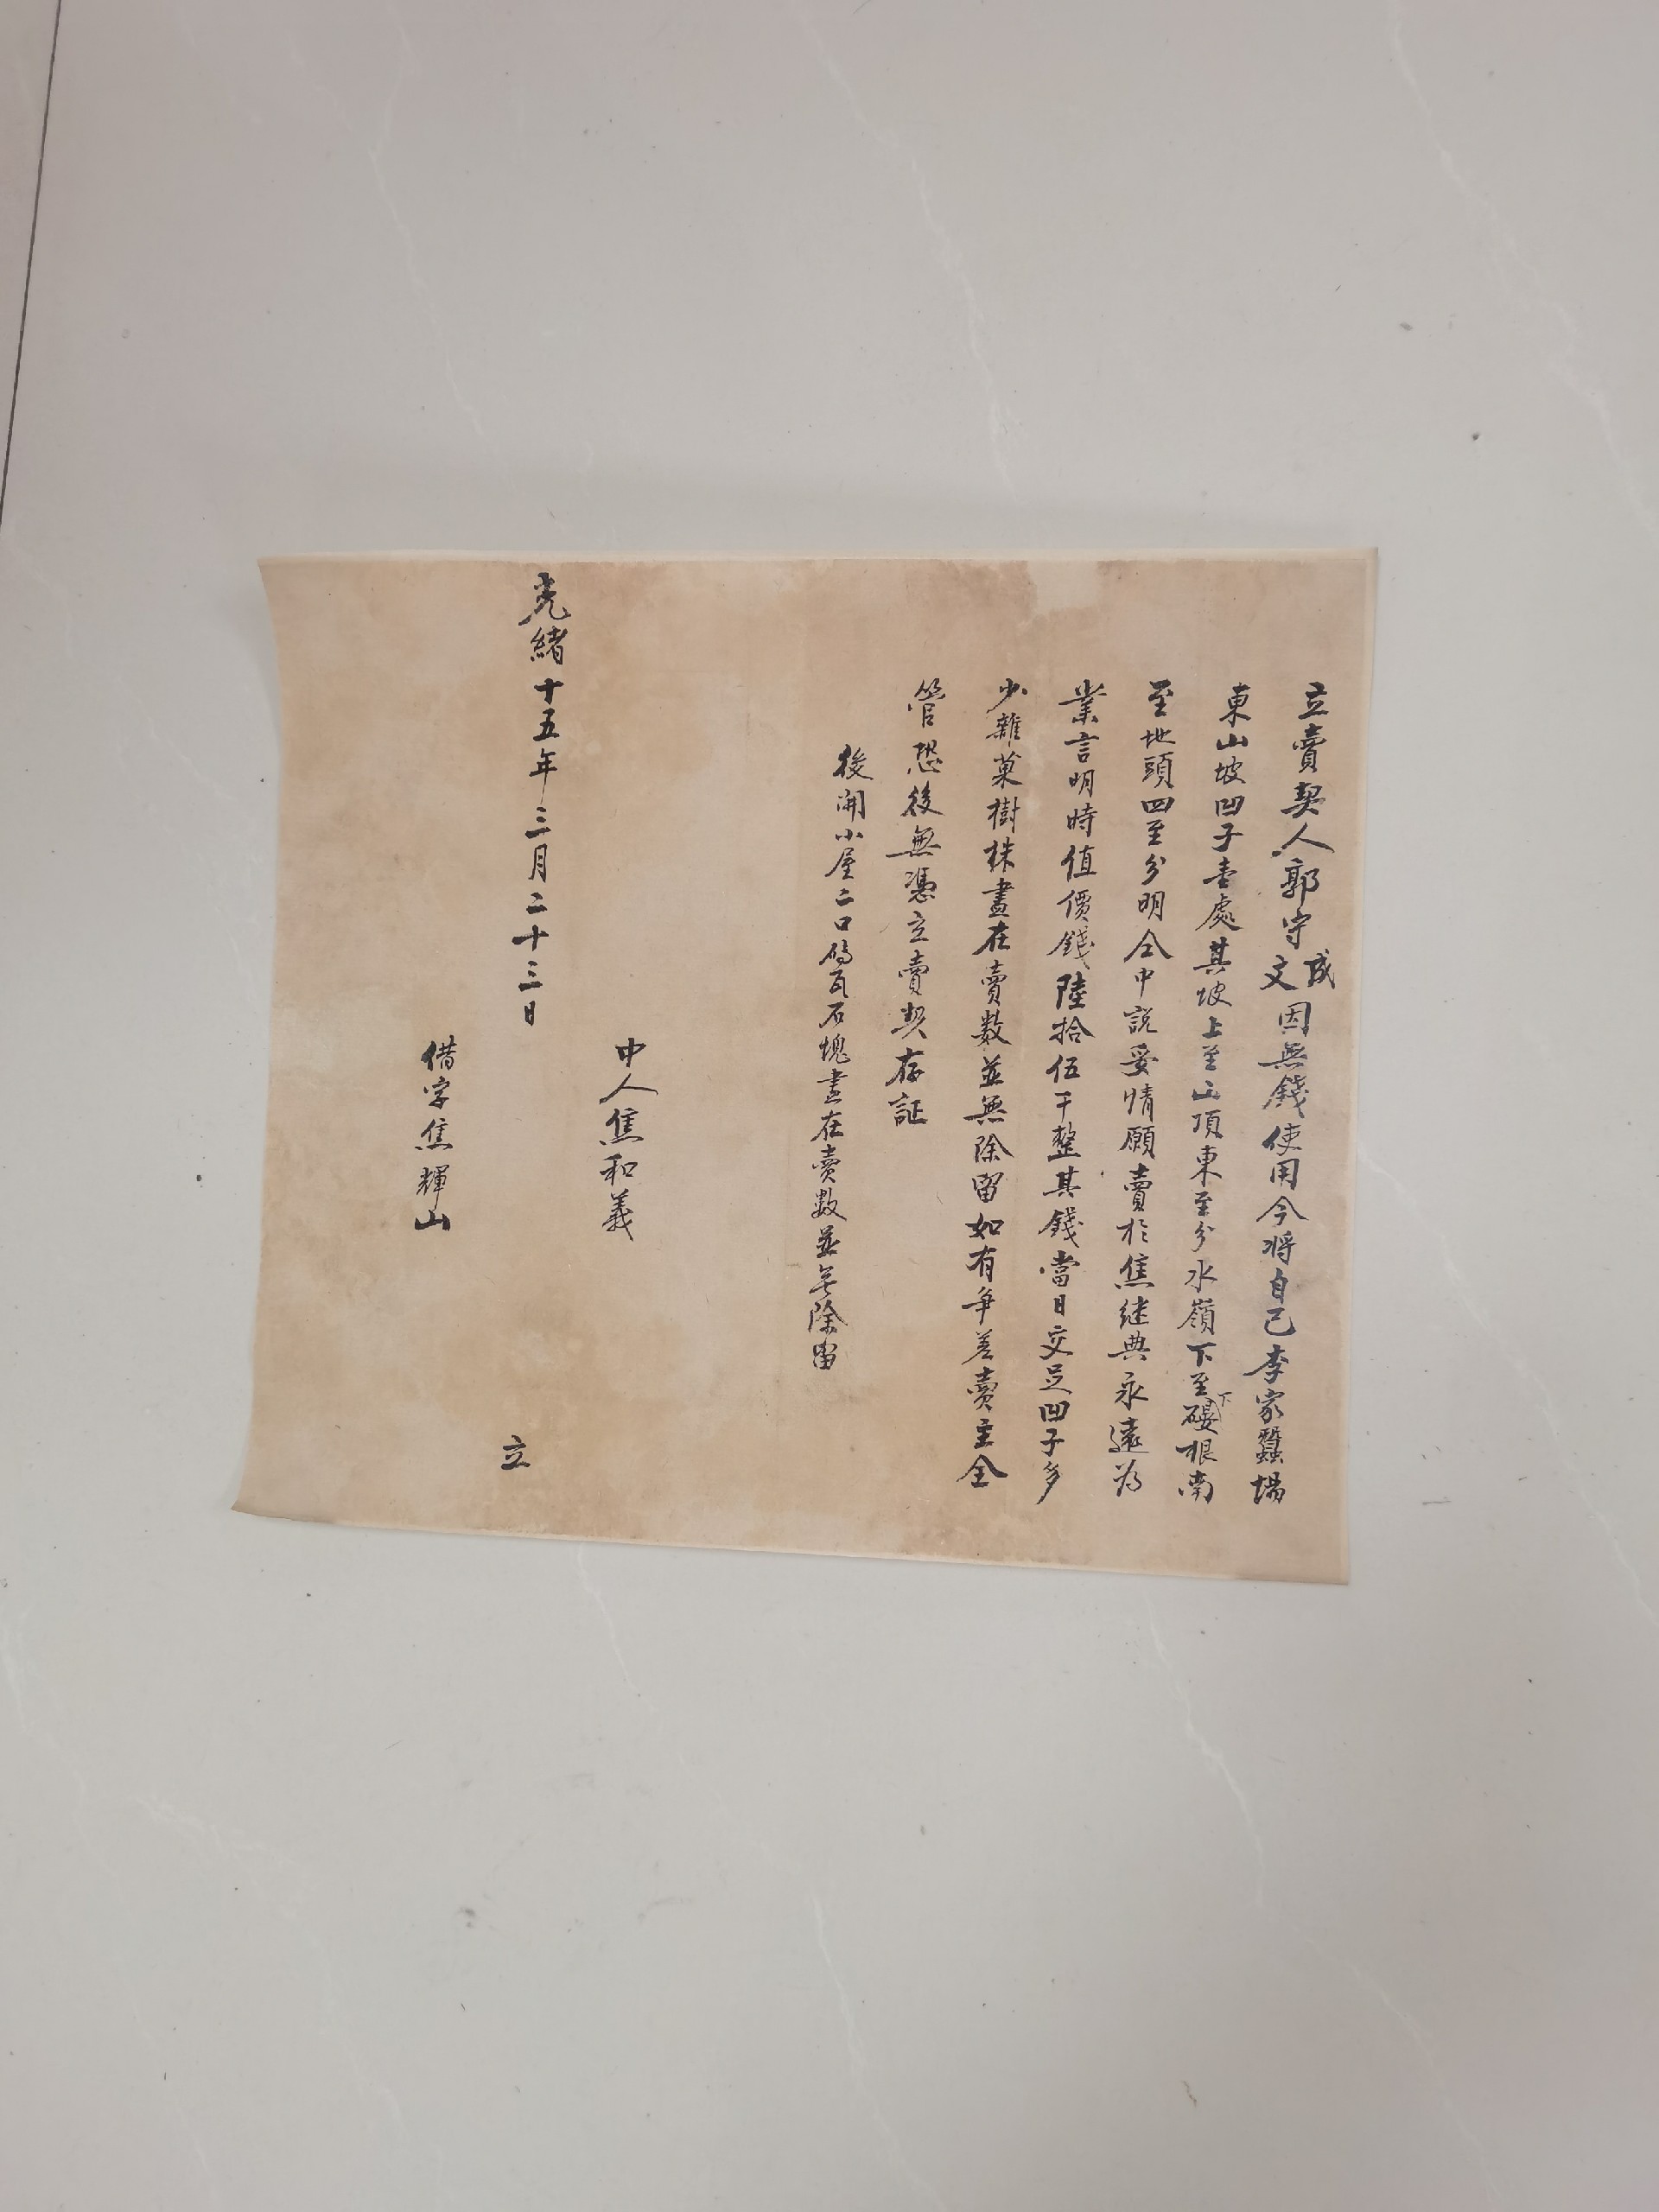 立賣契人郭守成文因無錢使用今将自己李家蠶場
東山坡凹子壹處其坡上至山頂東至分水嶺下至下根南
至地頭四至分明仝中説妥情願賣於焦継典永遠为
業言明時值價錢陸拾伍千整其錢當日交足凹子多
少雜菓樹株盡在賣數並無除留如有争差賣主全
管恐後無憑立賣契存証
後開小屋二口磚瓦石塊盡在賣數並无除留
中人焦和義
光緒十五年三月二十三日 立
借字焦輝山